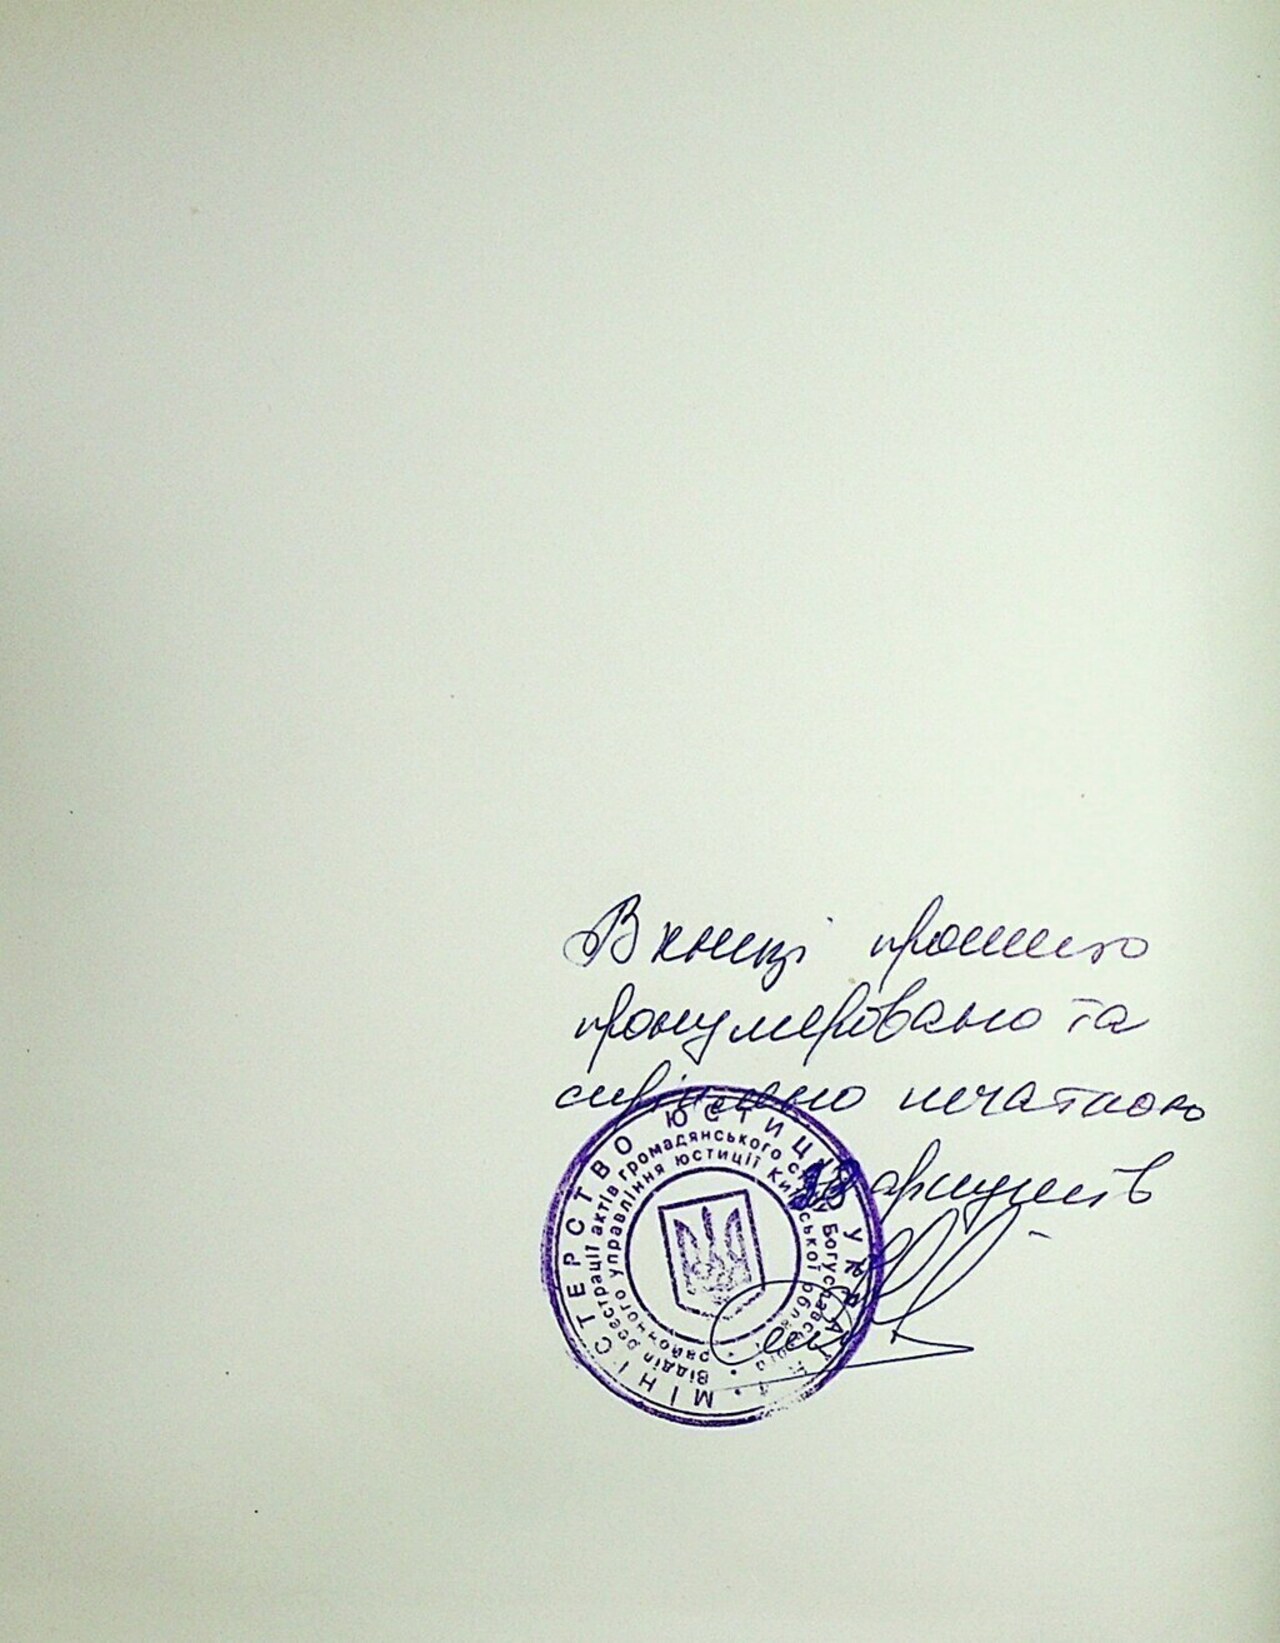 В книзі прошито
пронумеровано та
скріплено печаткою
аркушів
МІНІСТЕРСТВО ЮСТИЦІЇ УКРАЇНИ
Відділ реєстрації актів громадянського стану Богуславського
районного управління юстиції Київської області